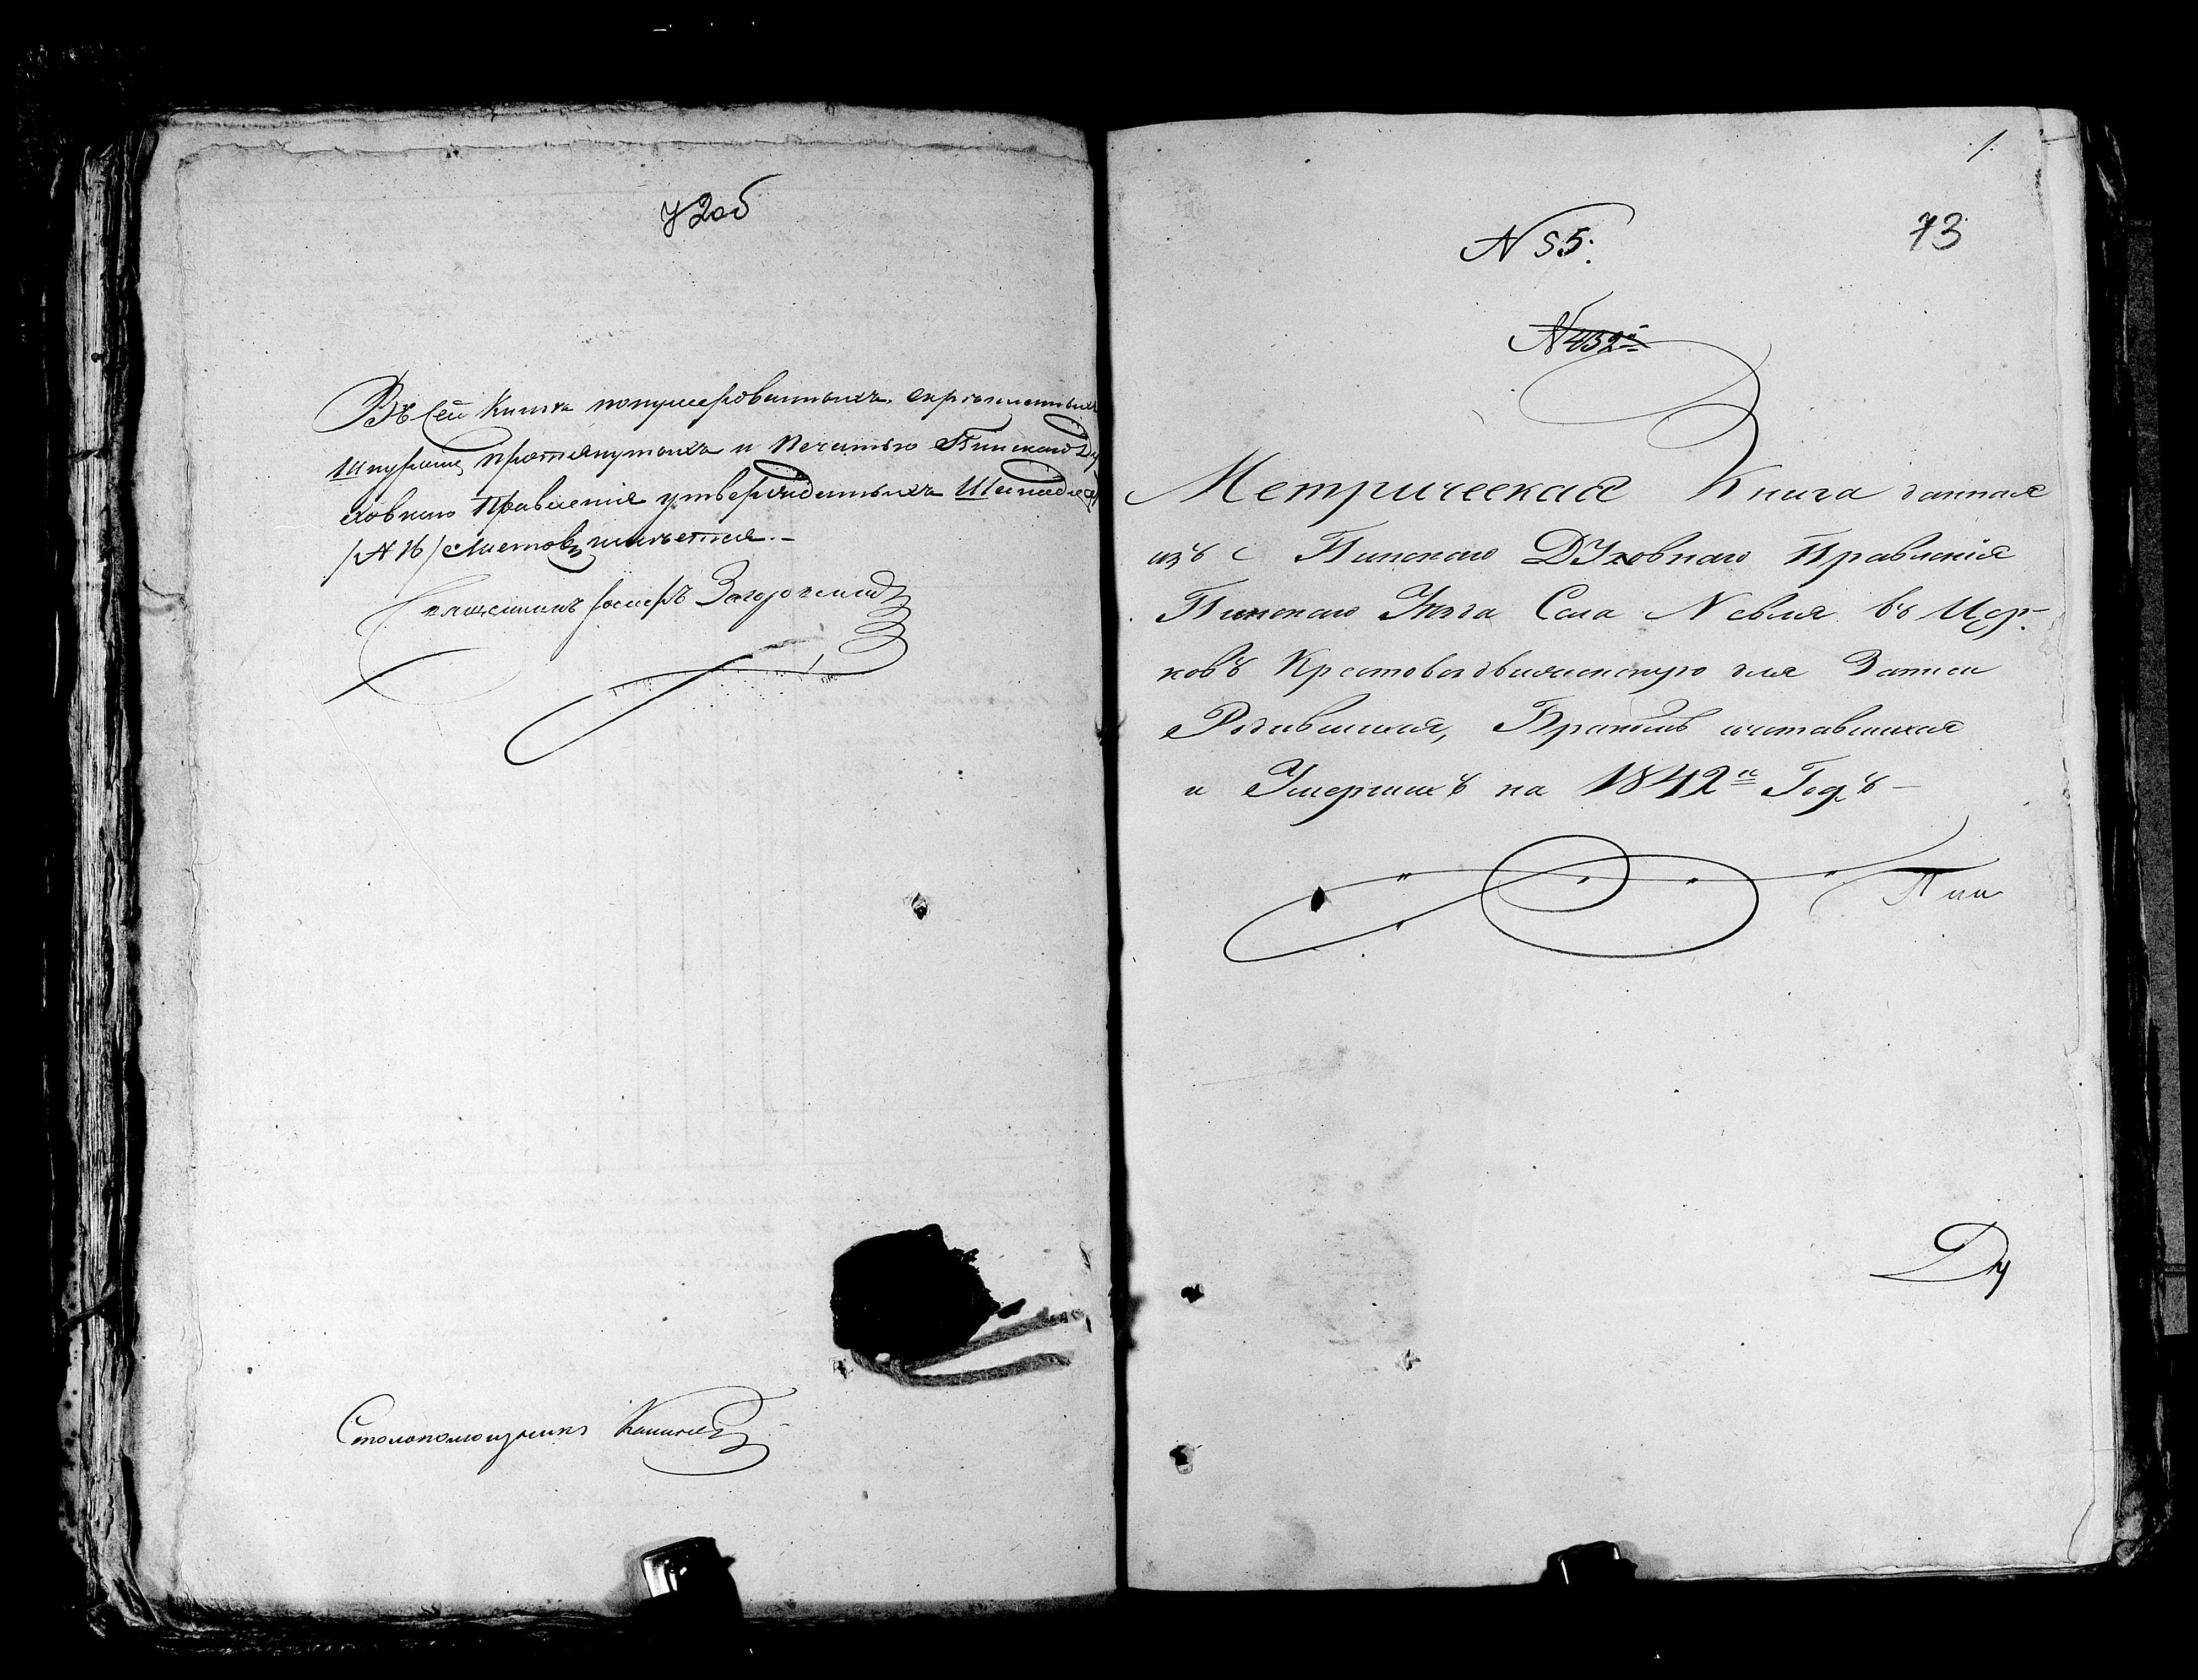 72об
Въ сей Книгѣ нонумерованныхъ скрѣпленныхъ
Шнуромъ протянутыхъ и Печатью Пинскаго Ду
ховнаго Правленія утвержденныхъ
/№ 16/ Листовъ имѣется.-
Священникъ Іосифъ Загоровскій
Столопомощникъ
1.
73
N 55.
N 452й
Метрическая Книга данная
изъ Пинскаго Духовнаго Правленія
Пинскаго Уѣзда Села Невля въ Цер-
ковь Крестовоздвиженскую для Записи
Родившихся, Бракомъ сочетавшихся
и Умершихъ на 1842й Годъ -
Пин
Ду